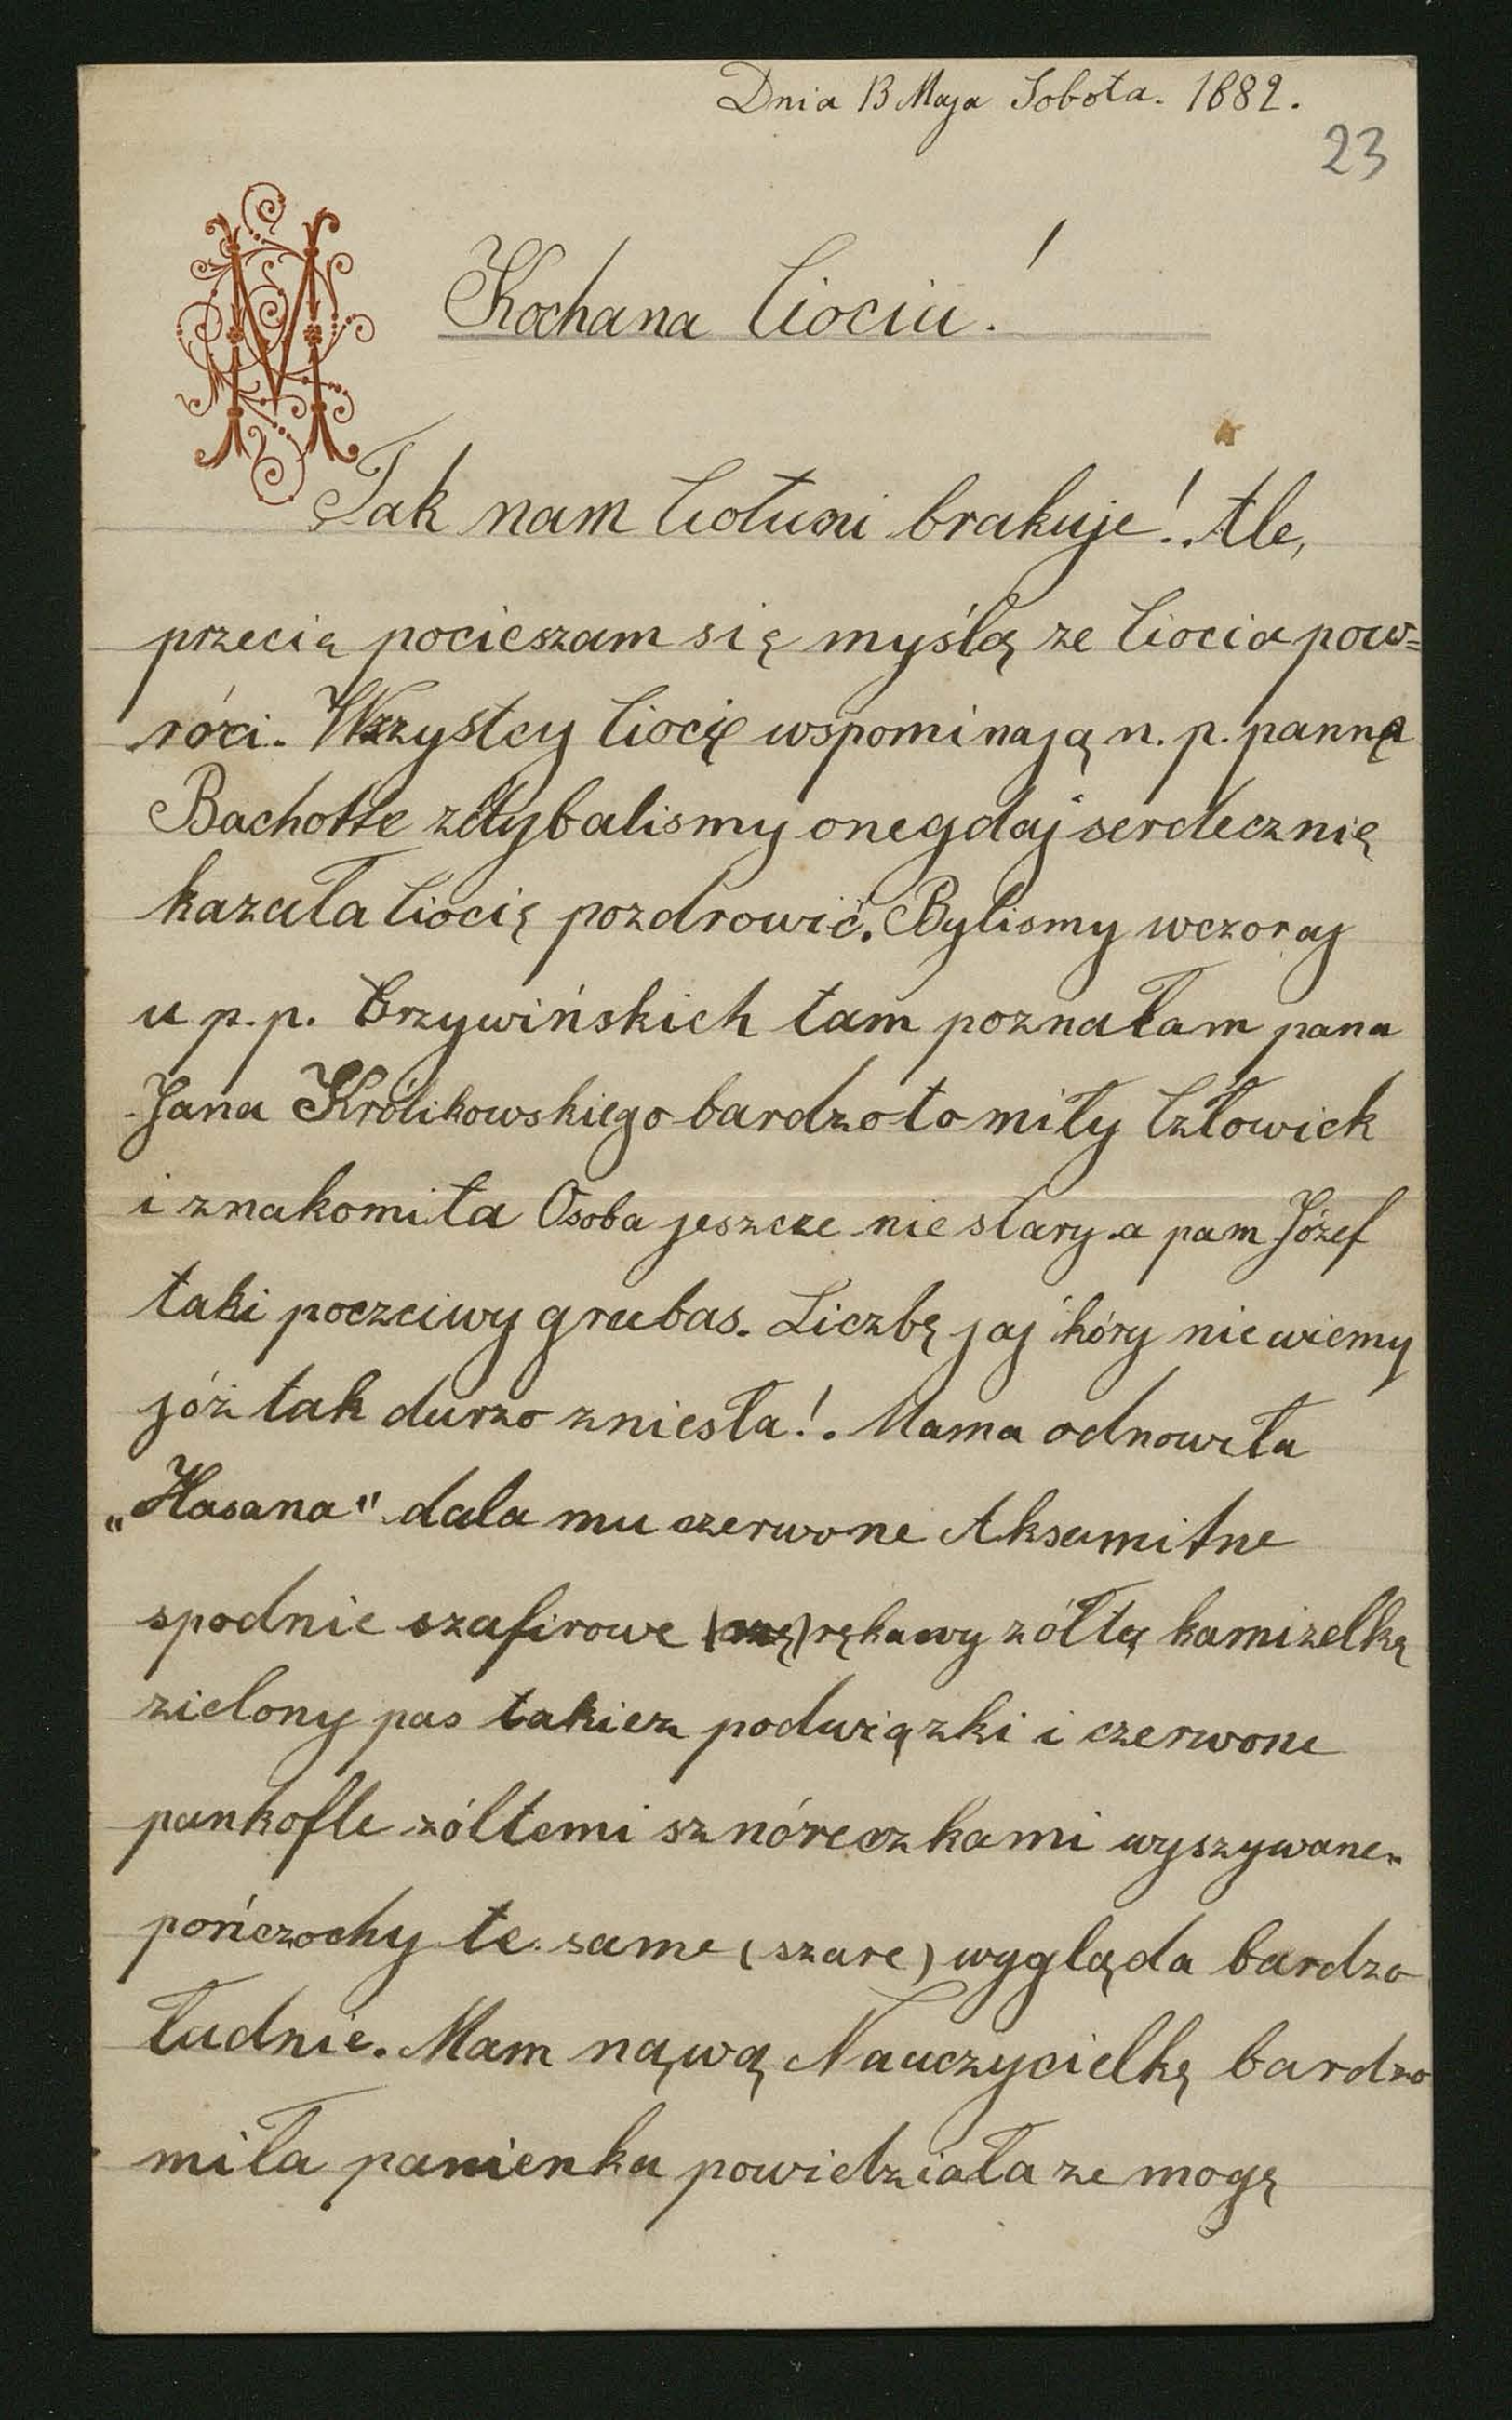 Dnia 13 Maja Sobota. 1882.
23
M
Kochana Ciociu!
Tak nam Ciotuni brakuje! Ale,
przecię pocieszam się myślą ze Ciocia pow=
róci. Wszystcy Ciocię wspominają n. p. pannę
Bachotte zdybalismy onegdaj serdecznię
kazała Ciocię pozdrowić. Bylismy wczoraj
u p. p. Brzywińskich tam poznałam pana
Jana Królikowskiego bardzo to miły Człowiek
i znakomita Osoba jeszcze nie stary a pam Józef
taki poczciwy grubas. Liczbę jaj kóry nie wiemy
jóż tak durzo zniesła! Mama odnowiła
„Hasana" dala mu czerwone Aksamitne
spodnie szafirowe rękawy zółtą kamizelkę
zielony pas takiez podwiązki i czerwone
pankofle zółtemi sznóreczkami wyszywane.
pończochy te same (szare) wygląda bardzo
ładnie. Mam nąwą Nauczycielkę bardzo
miła panienka powiedziała ze mogę